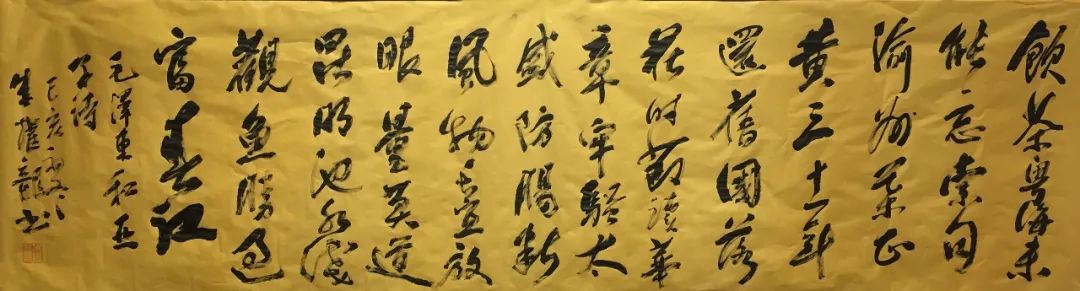 飲茶粤海未
能忘索句
渝州葉正
黄三十一年
還舊國落
花时節读華
章牢騷太
盛防腸断
風物长宜放
眼量莫道
昆明池水淺
觀魚勝過
富春江
毛澤東和亚
子诗
己亥
龍书